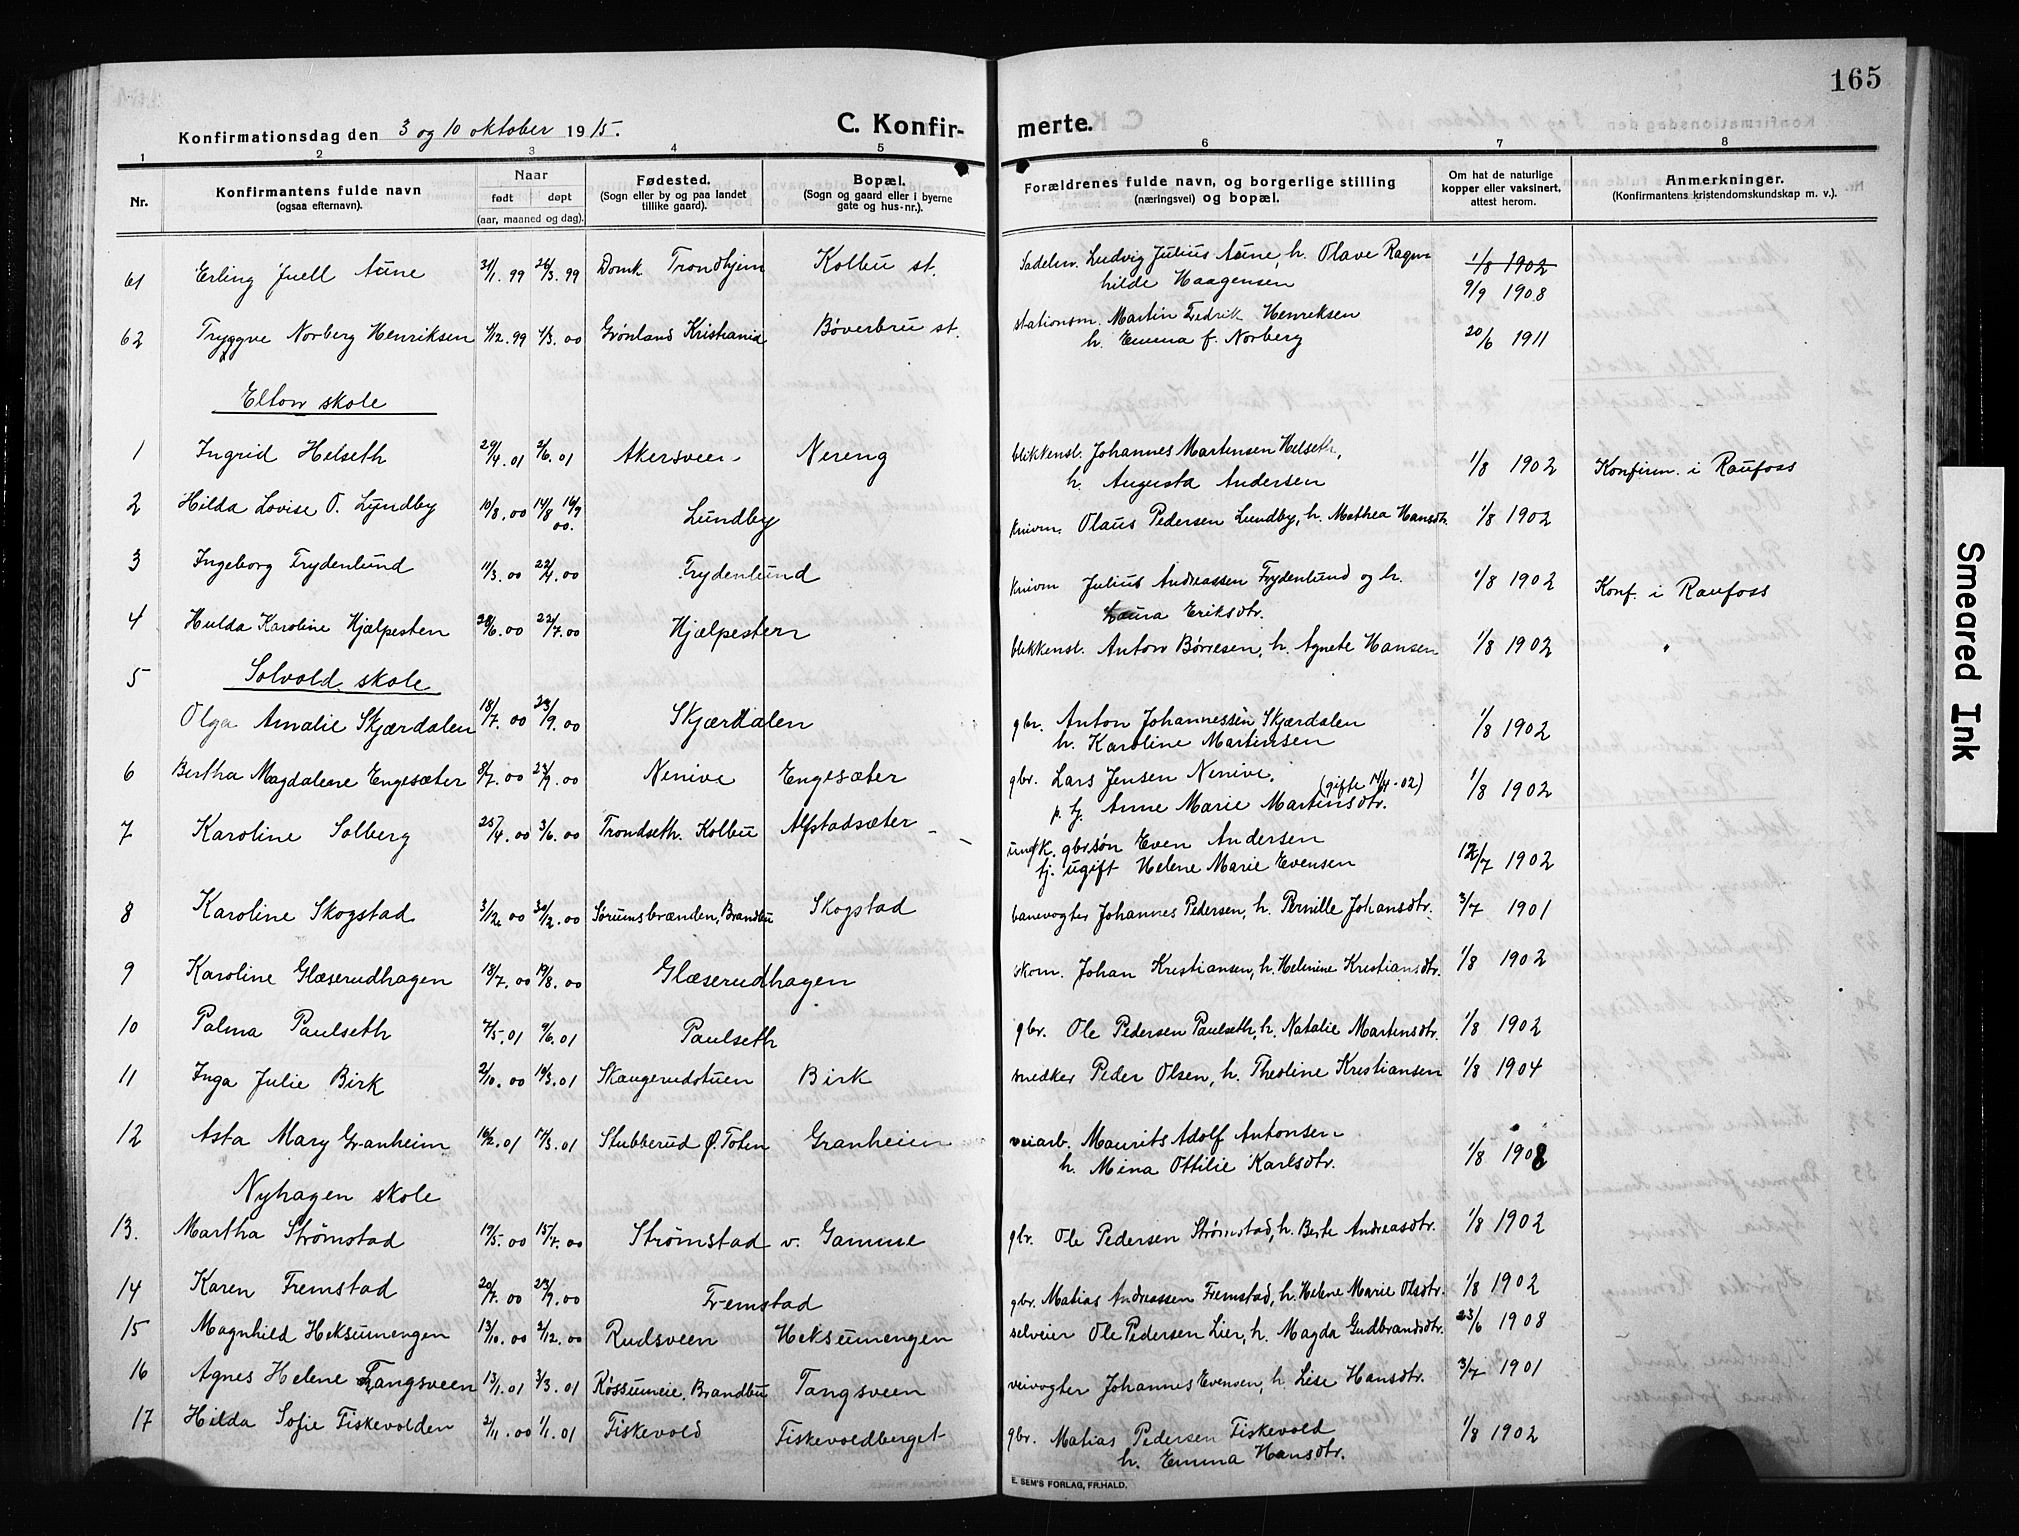 165
Konfirmationsdag den 3 og 10 oktober 1915.
C. Konfir-
merte.
1 2 3 4 5 6 7 8
Nr.
Konfirmantens fulde navn
(ogsaa efternavn).
Naar
født døpt
(aar, maaned og dag).
Fødested.
(Sogn eller by og paa landet
tillike gaard).
Bopæl.
(Sogn og gaard eller i byerne
gate og hus-nr.).
Forældrenes fulde navn, og borgerlige stilling
(næringsvei) og bopæl.
Om hat de naturlige
kopper eller vaksinert.
attest herom.
Anmerkninger.
(Konfirmantens kristendomskundskap m. v.).
61 Erling Juell Aune 31/1. 99 26/3. 99 Domk Trondhjem Kolbu st. Sadelm. Ludvig Julius Aune, h. Olave Ragn- 1/8 1902
hilde Haagensen 9/9 1908
62 Tryggve Norberg Henriksen 1/12. 99 4/3. 00 Grønland Kristiania Bøverbru st. stationsm. Martin Fredrik Henriksen
h. Emma f. Norberg 20/6 1911
Elton skole
1 Ingrid Helseth 29/4. 01 2/6. 01 Akersveen Nereng blikkensl. Johannes Martinsen Helseth,
h. Augusta Andersen 1/8 1902 Konfirm. i Raufoss
2 Hilda Lovise O. Lundby 10/8. 00 14/8 16/9 00. Lundby knivm. Olaus Pedersen Lundby, h. Mathea Hansdtr. 1/8 1902
3 Ingeborg Frydenlund 11/3. 00 22/4. 00 Frydenlund knivm Julius Andreassen Frydenlund og h. 1/8 1902 Konf. i Raufoss
Laura Eriksdtr.
4 Hulda Karoline Hjælpesten 28/6. 00 22/7. 00 Hjælpesten blikkensl. Anton Børresen, h. Agnete Hansen 1/8 1902 "
5 Solvold skole
Olga Amalie Skjærdalen 18/7. 00 23/9. 00 Skjærdalen gbr. Anton Johannessen Skjærdalen
h. Karoline Martinsen 1/8 1902
6 Bertha Magdalene Engesæter 8/7. 00 23/9. 00 Nenive Engesæter gbr. Lars Jensen Nenive. (gifte 14/4-02)
p. tj. Anne Marie Martinsdtr. 1/8 1902
7 Karoline Solberg 25/4. 00 3/6. 00 Trondseth. Kolbu Alfstadsæter ungk. gbrsøn Even Andersen
tj. ugift Helene Marie Evensen 12/7 1902
8 Karoline Skogstad 3/12 00 30/12. 00 Sørumsbrænden, Brandbu Skogstad banevogter Johannes Pedersen, h. Pernille Johansdtr. 3/7 1901
9 Karoline Glæserudhagen 18/7. 00 19/8. 00 Glæserudhagen skom. Johan Kristiansen, h. Helmine Kristiansdtr. 1/8 1902
10 Palma Paulseth 7/5. 01 9/6. 01 Paulseth gbr. Ole Pedersen Paulseth, h. Natalie Martinsdtr. 1/8 1902
11 Inga Julie Birk 2/10. 00 10/3. 01 Skaugerudstuen Birk snedker Peder Olsen, h. Theoline Kristiansen 1/8 1904
12 Asta Mary Granheim 16/2. 01 17/3. 01 Stubberud Ø. Toten Granheim veiarb. Maurits Adolf Antonsen
h. Mina Ottilie Karlsdtr. 1/8 1908
Nyhagen skole
13. Martha Strømstad 19/5. 00 15/7. 00 Strømstad v. Gamme gbr. Ole Pedersen Strømstad, h. Berte Andreasdtr. 1/8 1902
14 Karen Fremstad 20/7. 00 23/9. 00 Fremstad gbr. Matias Andreassen Fremstad, h. Helene Marie Olsdtr. 1/8 1902
15 Magnhild Heksumengen 13/10. 00 2/12. 00 Rudsveen Heksumengen selveier Ole Pedersen Lier, h. Magda Gudbrandsdtr. 23/6 1908
16 Agnes Helene Tangsveen 13/1. 01 3/3. 01 Røssumeie, Brandbu Tangsveen veivogter Johannes Evensen, h. Lise Hansdtr. 3/7 1901
17 Hilda Sofie Fiskevolden 2/11. 00 1/1. 01 Fiskevold Fiskevoldberget gbr. Matias Pedersen Fiskevold
h. Emma Hansdtr. 1/8 1902
E. SEM'S FORLAG, FR.HALD.
Smeared Ink